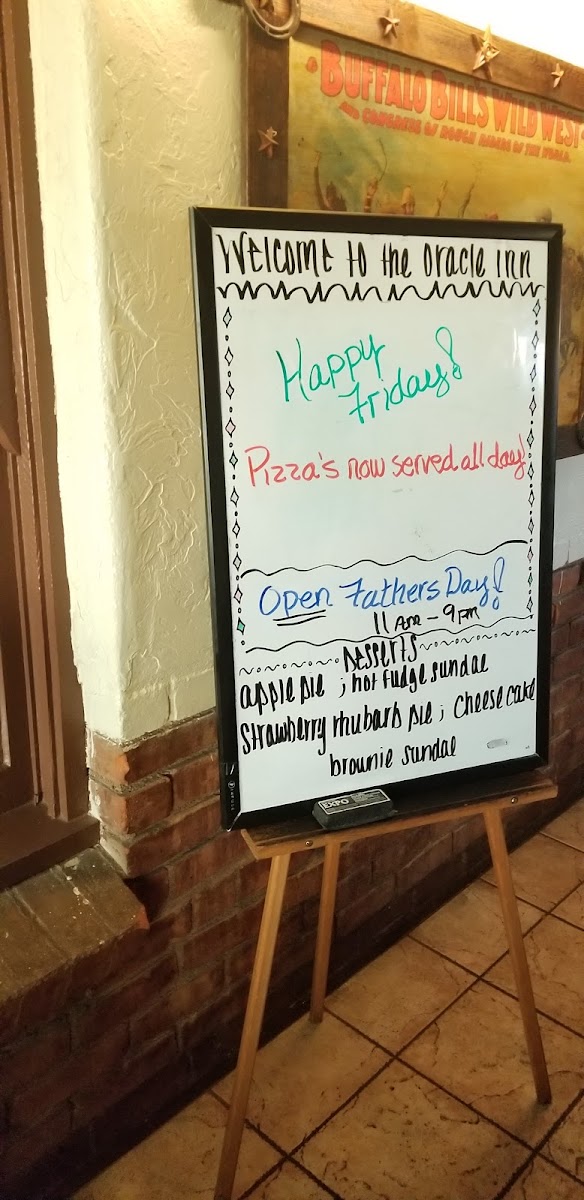 BUFFALO BILL'S WILD WEST
AND CONGRESS OF ROUGH RIDERS OF THE WORLD.
Welcome to the Oracle Inn
Happy
Friday!
Pizza's now served all day!
Open Fathers Day!
11 Am - 9 pm
Desserts
apple pie ; hot fudge sundae
Strawberry rhubarb pie ; Cheese cake
brownie sundae
EXPO